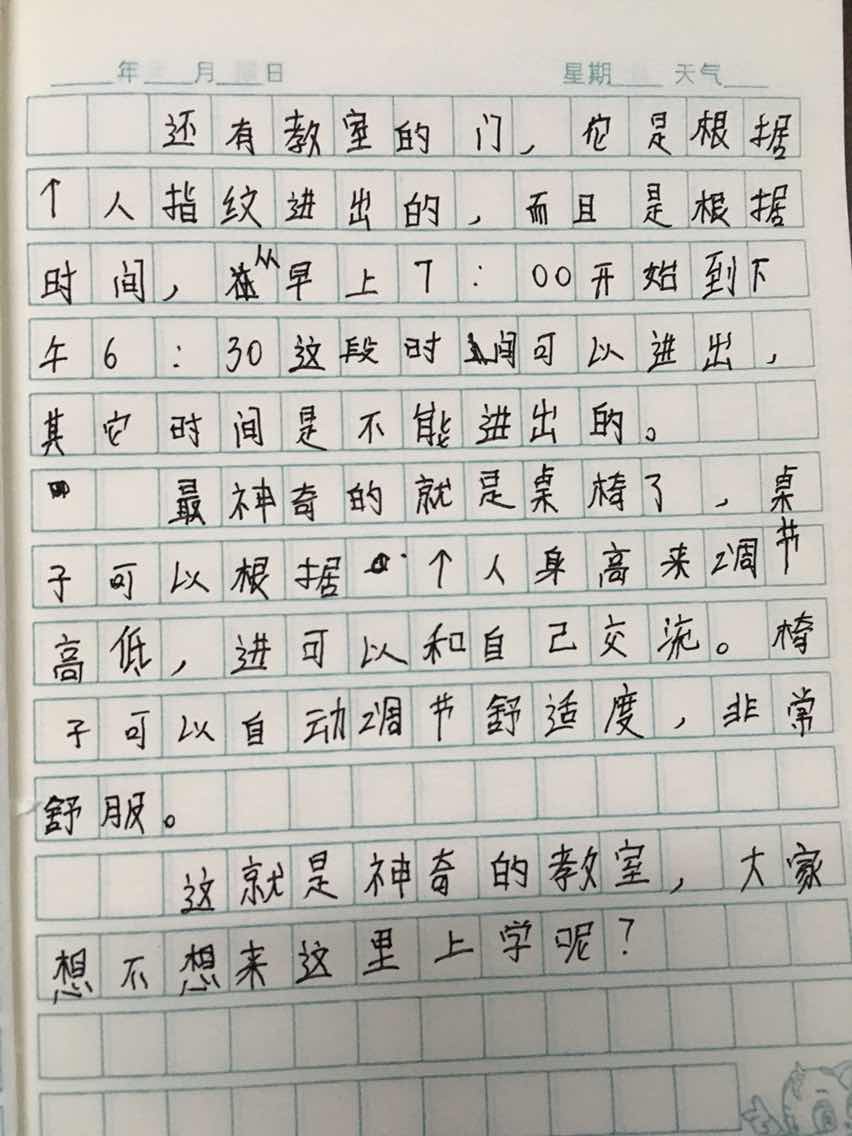 年 月 日 星期 天气
还有教室的门，它是根据
个人指纹进出的，而且是根据
时间，从早上7：00开始到下
午6：30这段时间可以进出，
其它时间是不能进出的。
最神奇的就是桌椅了，桌
子可以根据个人身高来调节
高低，进可以和自己交流。椅
子可以自动调节舒适度，非常
舒服。
这就是神奇的教室，大家
想不想来这里上学呢？